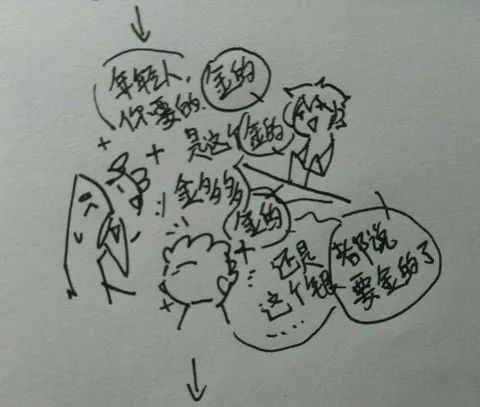 年轻人,
你要的
金的
是这个
金的
金多多多
金的
还是
这个银
……
都说
要金的了